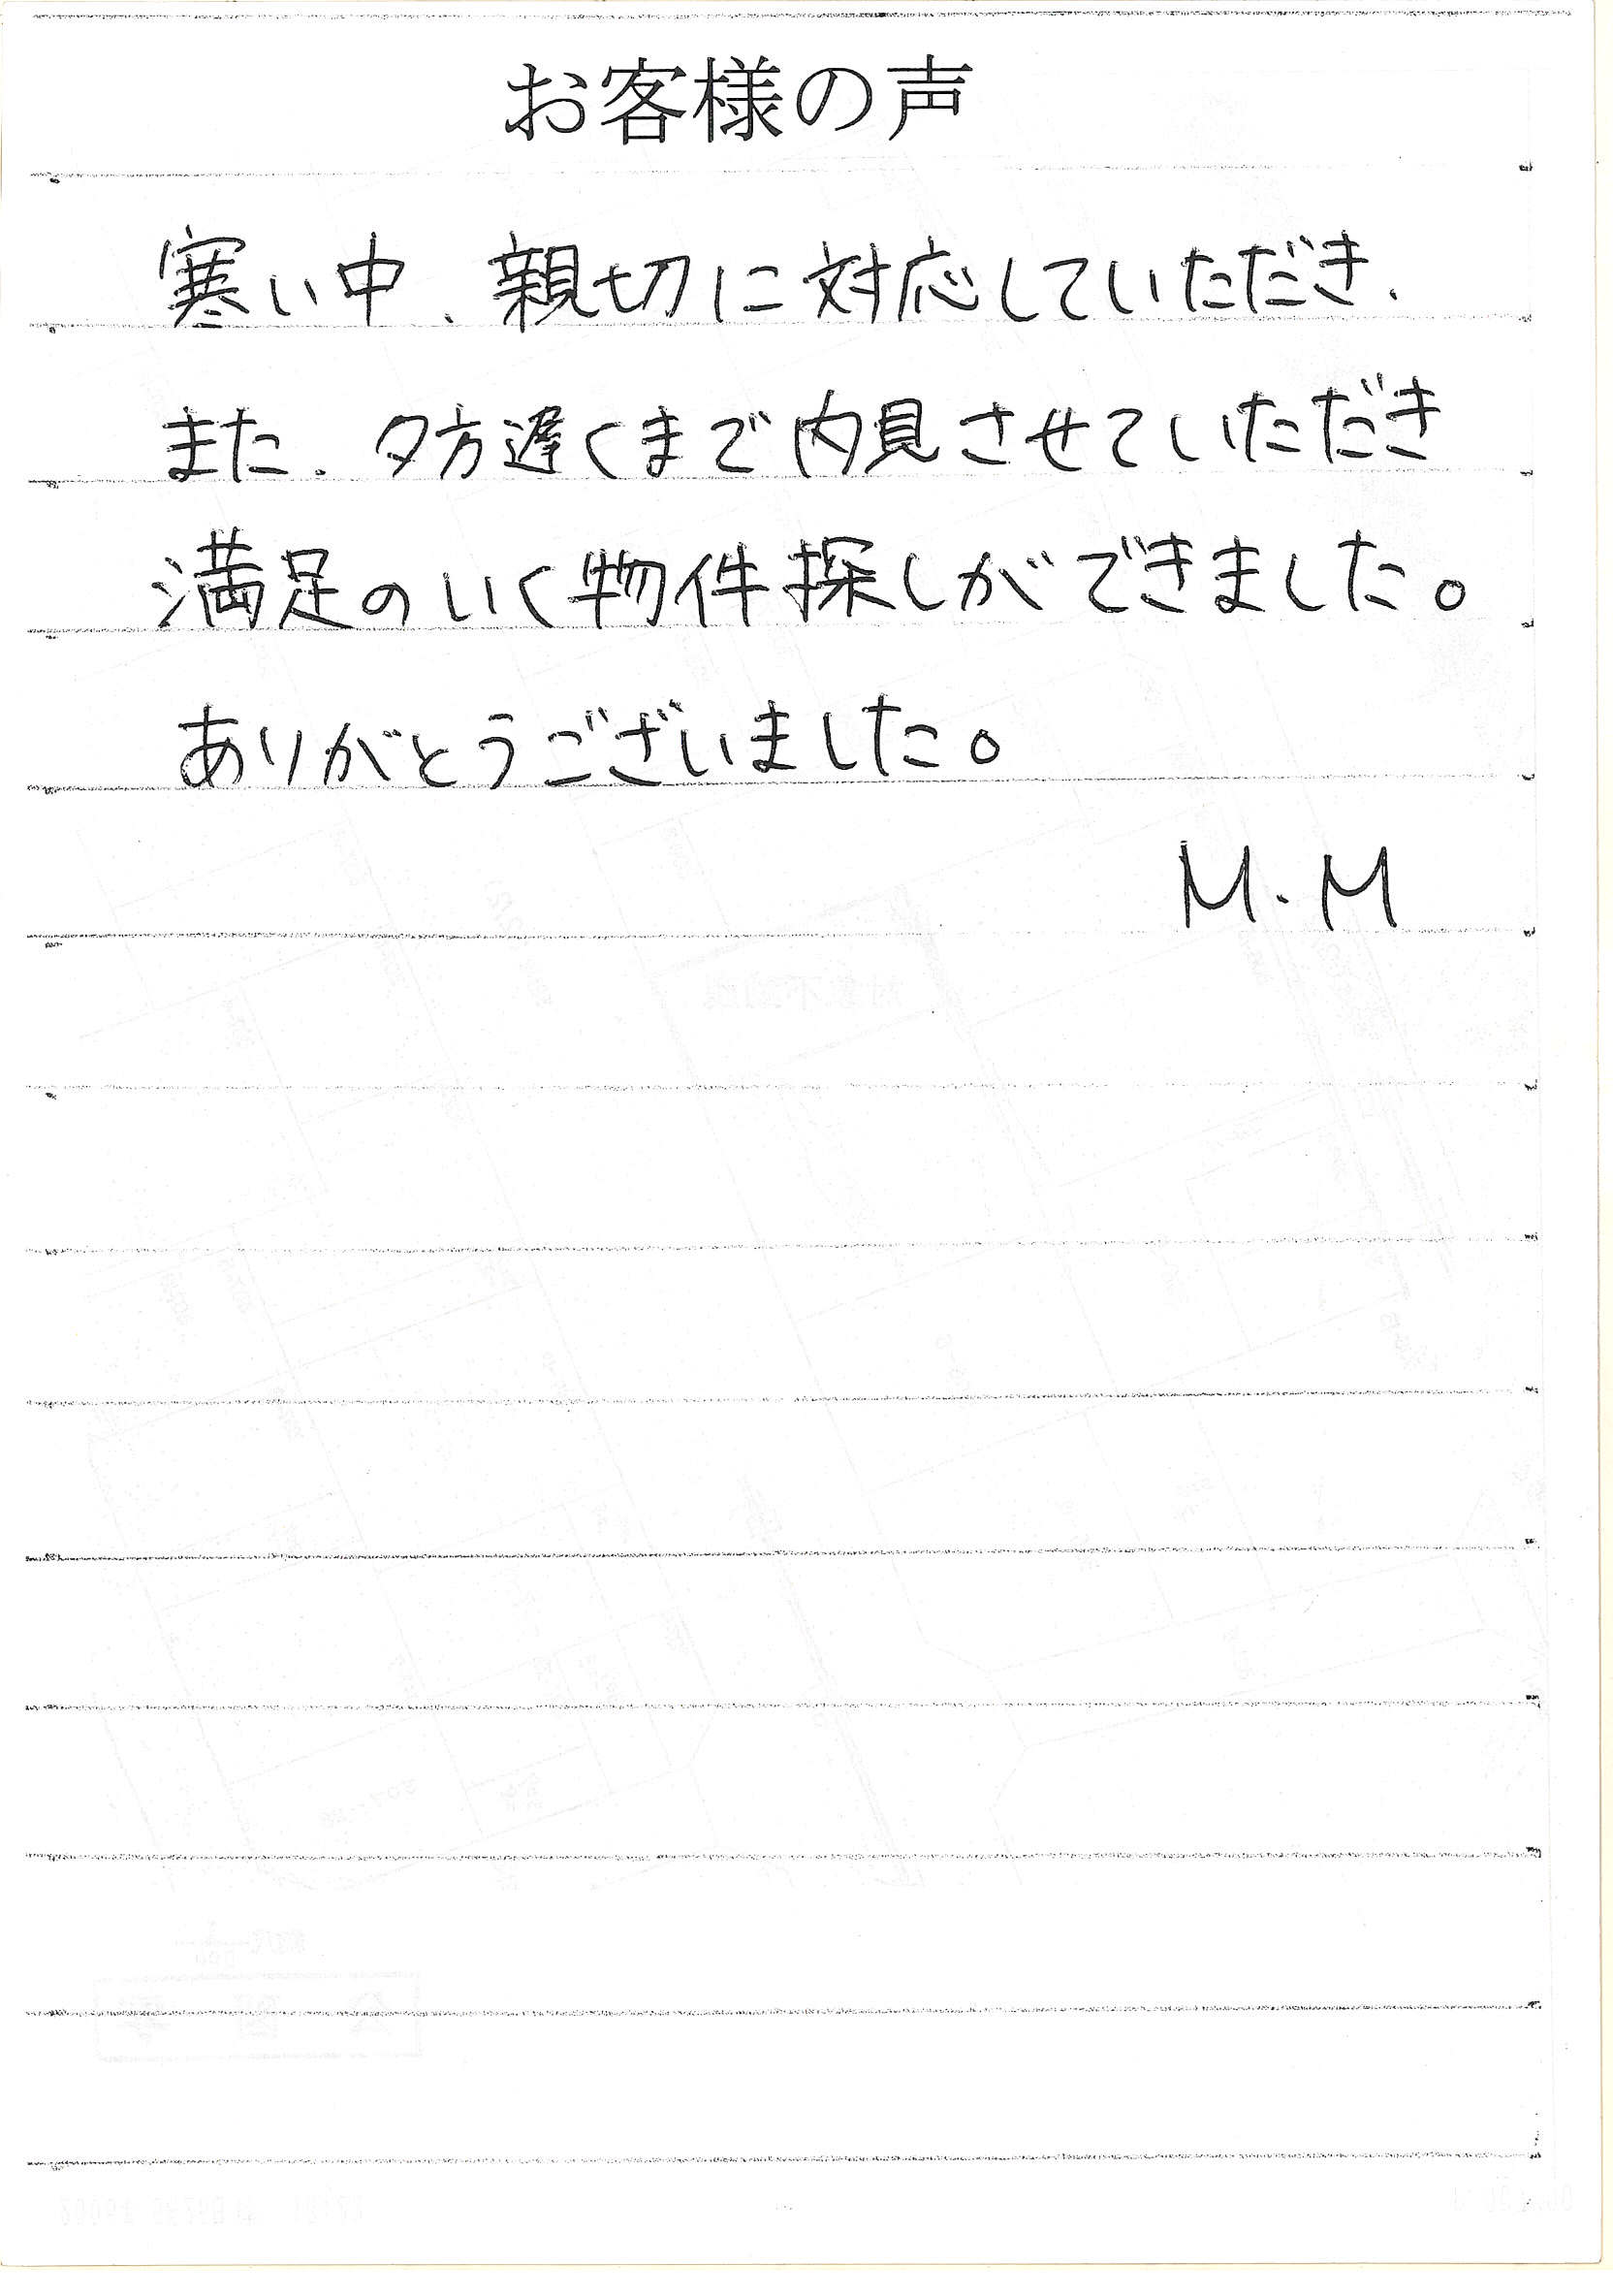 お客様の声
寒い中、親切に対応していただき、
また、夕方遅くまで内見させていただき
満足のいく物件探しができました。
ありがとうございました。
M.M